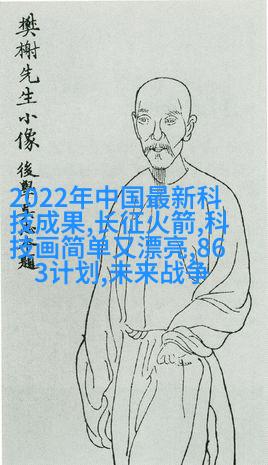 樊榭先生小像
後學
題
2022年中国最新科
技成果,长征火箭,科
技画简单又漂亮,86
3计划,未来战争